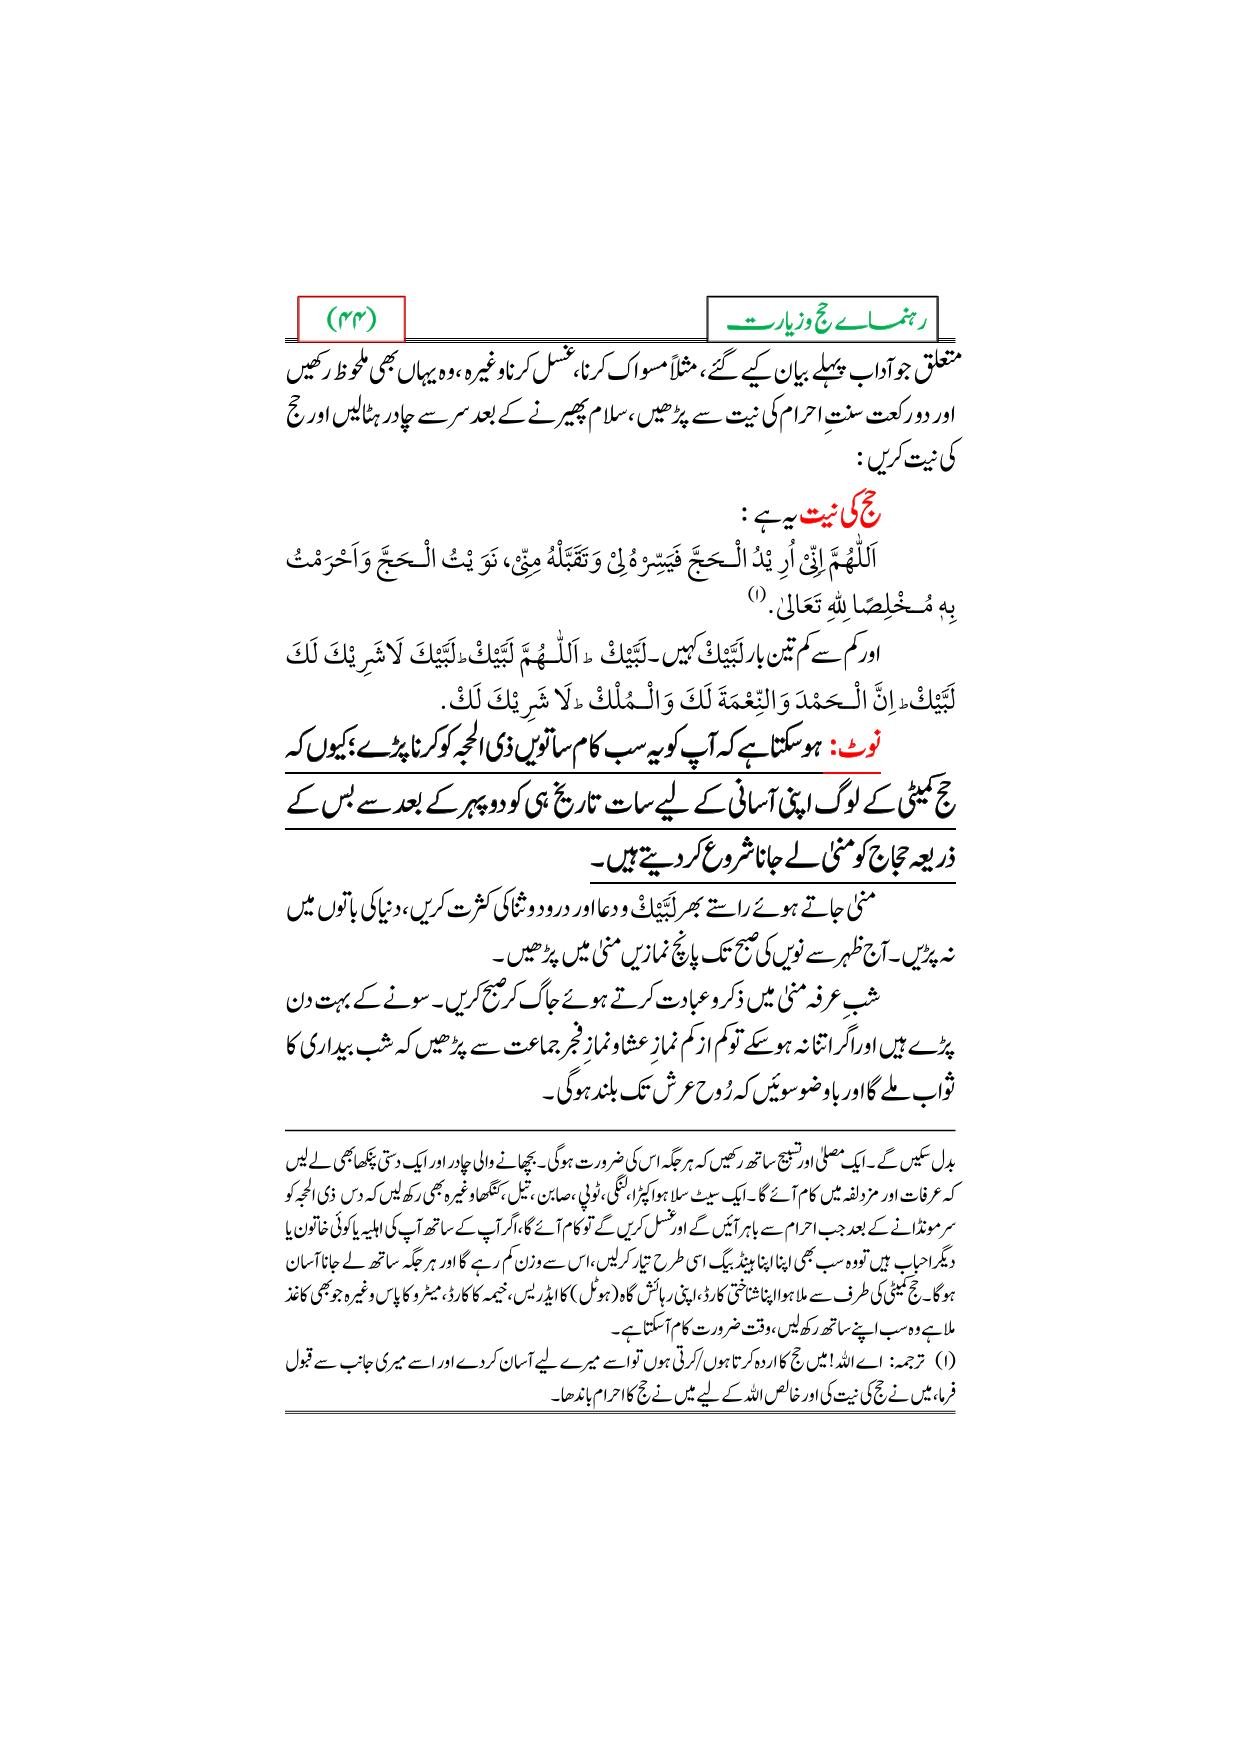 رہنماے حج و زیارت
(۴۴)
متعلق جو آداب پہلے بیان کیے گئے، مثلاً مسواک کرنا، غسل کرنا وغیرہ، وہ یہاں بھی ملحوظ رکھیں
اور دو رکعت سنتِ احرام کی نیت سے پڑھیں، سلام پھیرنے کے بعد سر سے چادر ہٹالیں اور حج
کی نیت کریں:
حج کی نیت یہ ہے:
اَللّٰهُمَّ اِنِّیْ اُرِيْدُ الْحَجَّ فَيَسِّرْهُ لِیْ وَتَقَبَّلْهُ مِنِّیْ، نَوَيْتُ الْحَجَّ وَاَحْرَمْتُ
بِهٖ مُخْلِصًا لِلّٰهِ تَعَالیٰ.(۱)
اور کم سے کم تین بار لَبَّيْكْ کہیں۔ لَبَّيْكْ ط اَللّٰهُمَّ لَبَّيْكْ ط لَبَّيْكَ لَا شَرِيْكَ لَكَ
لَبَّيْكْ ط اِنَّ الْحَمْدَ وَالنِّعْمَةَ لَكَ وَالْمُلْكْ ط لَا شَرِيْكَ لَكْ.
نوٹ: ہو سکتا ہے کہ آپ کو یہ سب کام ساتویں ذی الحجہ کو کرنا پڑے؛ کیوں کہ
حج کمیٹی کے لوگ اپنی آسانی کے لیے سات تاریخ ہی کو دوپہر کے بعد سے بس کے
ذریعہ حجاج کو منیٰ لے جانا شروع کر دیتے ہیں۔
منیٰ جاتے ہوئے راستے بھر لَبَّيْكْ و دعا اور درود و ثنا کی کثرت کریں، دنیا کی باتوں میں
نہ پڑیں۔ آج ظہر سے نویں کی صبح تک پانچ نمازیں منیٰ میں پڑھیں۔
شبِ عرفہ منیٰ میں ذکر و عبادت کرتے ہوئے جاگ کر صبح کریں۔ سونے کے بہت دن
پڑے ہیں اور اگر اتنا نہ ہو سکے تو کم از کم نمازِ عشا و نمازِ فجر جماعت سے پڑھیں کہ شب بیداری کا
ثواب ملے گا اور باوضو سوئیں کہ رُوح عرش تک بلند ہوگی۔
بدل سکیں گے۔ ایک مصلیٰ اور تسبیح ساتھ رکھیں کہ ہر جگہ اس کی ضرورت ہوگی۔ بچھانے والی چادر اور ایک دستی پنکھا بھی لے لیں
کہ عرفات اور مزدلفہ میں کام آئے گا۔ ایک سیٹ سلا ہوا کپڑا، لنگی، ٹوپی، صابن، تیل، کنگھا وغیرہ بھی رکھ لیں کہ دس ذی الحجہ کو
سر مونڈانے کے بعد جب احرام سے باہر آئیں گے اور غسل کریں گے تو کام آئے گا، اگر آپ کے ساتھ آپ کی اہلیہ یا کوئی خاتون یا
دیگر احباب ہیں تو وہ سب بھی اپنا اپنا ہینڈ بیگ اسی طرح تیار کرلیں، اس سے وزن کم رہے گا اور ہر جگہ ساتھ لے جانا آسان
ہوگا۔ حج کمیٹی کی طرف سے ملا ہوا اپنا شناختی کارڈ، اپنی رہائش گاہ (ہوٹل) کا ایڈریس، خیمہ کا کارڈ، میٹرو کا پاس وغیرہ جو بھی کاغذ
ملا ہے وہ سب اپنے ساتھ رکھ لیں، وقت ضرورت کام آسکتا ہے۔
(۱) ترجمہ: اے اللہ! میں حج کا اردہ کرتا ہوں/کرتی ہوں تو اسے میرے لیے آسان کر دے اور اسے میری جانب سے قبول
فرما، میں نے حج کی نیت کی اور خالص اللہ کے لیے میں نے حج کا احرام باندھا۔